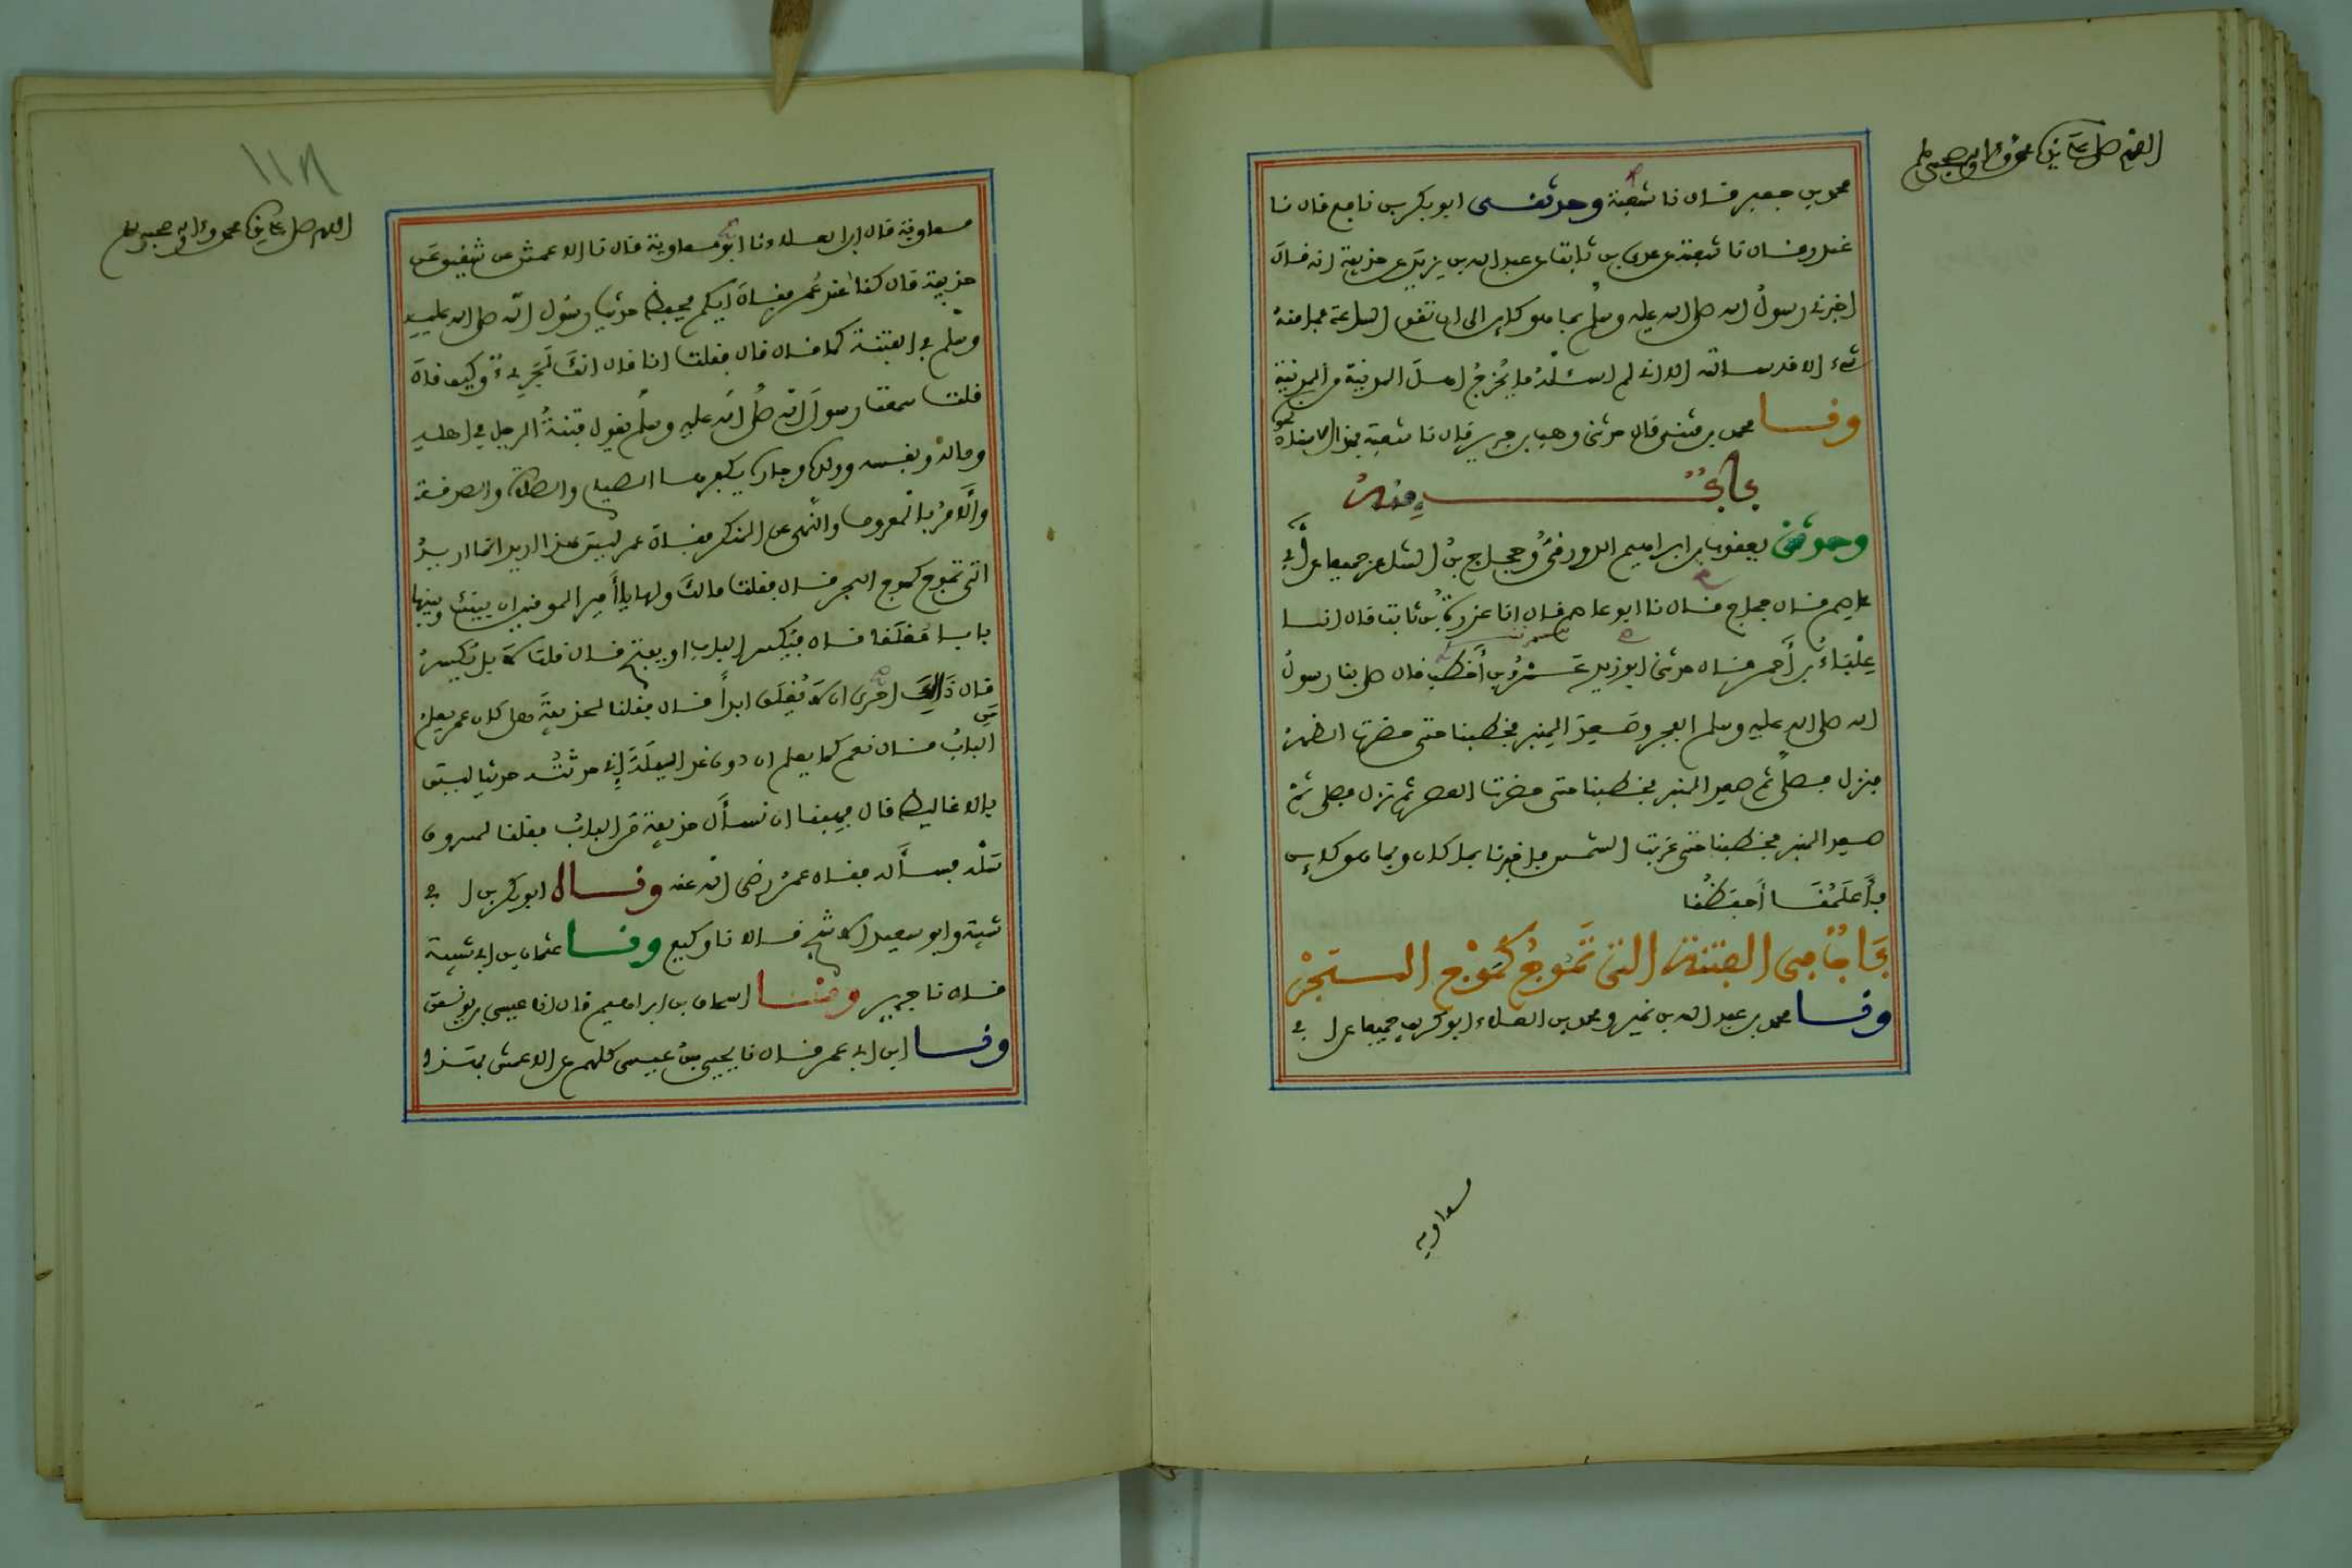 محمد بن جعفر قال نا شعبة وحدثنى ابو بكر بن نافع قال نا
غندر قال نا شعبة عن عدى بن ثابت عن عبد الله بن يزيد عن حذيفة انه قال
اخبرنى رسول الله صلى الله عليه وسلم بما هو كاين الى ان تقوم الساعة فما منه
شىء الا قد سالته الا انى لم اسئله ما يخرج اهل المدينة من المدينة
ونا محمد بن مثنى قال حدثنى وهب بن جرير قال نا شعبة بهذا الاسناد نحوه
باب منه
وحدثنى يعقوب بن ابراهيم الدورقى وحجاج بن الشاعر جميعا عن ابى
عاصم قال حجاج قال نا ابو عاصم قال انا عزرة بن ثابت قال انا
علباء بن احمر قال حدثنى ابو زيد عمرو بن اخطب قال صلى بنا رسول
الله صلى الله عليه وسلم الفجر وصعد المنبر فخطبنا حتى حضرت الظهر
فنزل فصلى ثم صعد المنبر فخطبنا حتى حضرت العصر ثم نزل فصلى ثم
صعد المنبر فخطبنا حتى غربت الشمس فاخبرنا بما كان وبما هو كاين
فاعلمنا احفظنا
باب فى الفتنة التى تموج كموج البحر
ونا محمد بن عبد الله بن نمير ومحمد بن العلاء ابو كريب جميعا عن ابى
معاوية
١١٨
معاوية قال ابن العلاء نا ابو معاوية قال نا الاعمش عن شقيق عن
حذيفة قال كنا عند عمر فقال ايكم يحفظ حديث رسول الله صلى الله عليه
وسلم فى الفتنة كما قال قال فقلت انا قال انك لجرىء وكيف قال
قلت سمعت رسول الله صلى الله عليه وسلم يقول فتنة الرجل فى اهله
وماله ونفسه وولده وجاره يكفرها الصيام والصلاة والصدقة
والامر بالمعروف والنهى عن المنكر فقال عمر ليس هذا اريد انما اريد
التى تموج كموج البحر قال فقلت مالك ولها يا امير المومنين ان بينك وبينها
بابا مغلقا قال فيكسر الباب او يفتح قال قلت لا بل يكسر
قال ذلك احرى ان لا يغلق ابدا قال فقلنا لحذيفة هل كان عمر يعلم من
الباب قال نعم كما يعلم ان دون غد الليلة انى حدثته حديثا ليس
بالاغاليط قال فهبنا ان نسأل حذيفة من الباب فقلنا لمسروق
سله فسأله فقال عمر رضى الله عنه وناه ابو بكر بن ابى
شيبة وابو سعيد الاشج قالا نا وكيع ونا عثمان بن ابى شيبة
قال نا جرير ونا اسحاق بن ابراهيم قال انا عيسى بن يونس
ونا ابن ابى عمر قال نا يحيى بن عيسى كلهم عن الاعمش بهذا